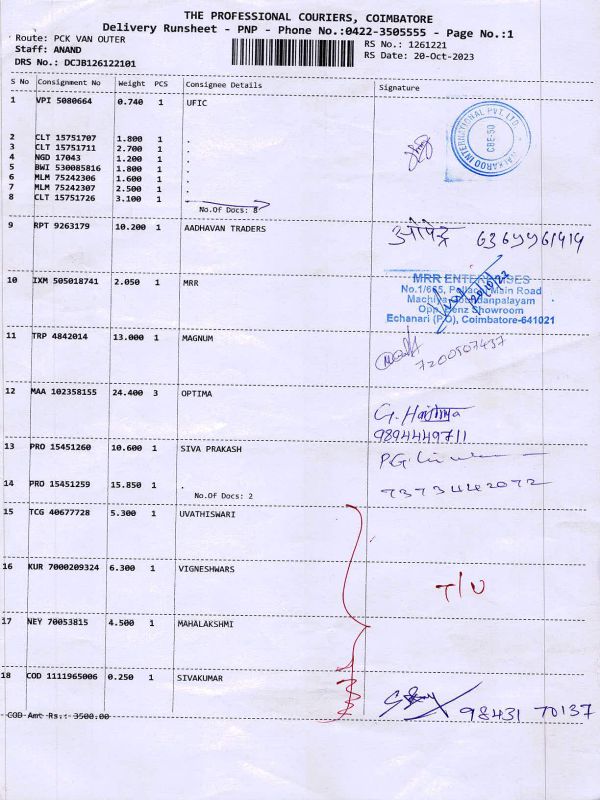 THE PROFESSIONAL COURIERS, COIMBATORE
Delivery Runsheet - PNP - Phone No.:0422-3505555 - Page No.:1
Route: PCK VAN OUTER
Staff: ANAND
DRS No.: DCJB126122101
RS No.: 1261221
RS Date: 20-Oct-2023
S No Consignment No Weight PCS Consignee Details Signature
1 VPI 5080664 0.740 1 UFIC
INTERNATIONAL PVT. LTD.
CBE-50
2 CLT 15751707 1.800 1 .
3 CLT 15751711 2.700 1 .
4 NGD 17043 1.200 1 .
5 BWI 530085816 1.800 1 .
6 MLM 75242306 1.600 1 .
7 MLM 75242307 2.500 1 .
8 CLT 15751726 3.100 1 .
No.Of Docs: 8
9 RPT 9263179 10.200 1 AADHAVAN TRADERS
10 IXM 505018741 2.050 1 MRR
MRR ENTERPRISES
No.1/665, Pollachi Main Road
Opp Benz Showroom
Echanari (P.O), Coimbatore-641021
11 TRP 4842014 13.000 1 MAGNUM
7200507437
12 MAA 102358155 24.400 3 OPTIMA
9894449711
13 PRO 15451260 10.600 1 SIVA PRAKASH
14 PRO 15451259 15.850 1 .
7373442072
No.Of Docs: 2
15 TCG 40677728 5.300 1 UVATHISWARI
16 KUR 7000209324 6.300 1 VIGNESHWARS
T/U
17 NEY 70053815 4.500 1 MAHALAKSHMI
18 COD 1111965006 0.250 1 SIVAKUMAR
98431 70137
COD Amt Rs.: 3500.00